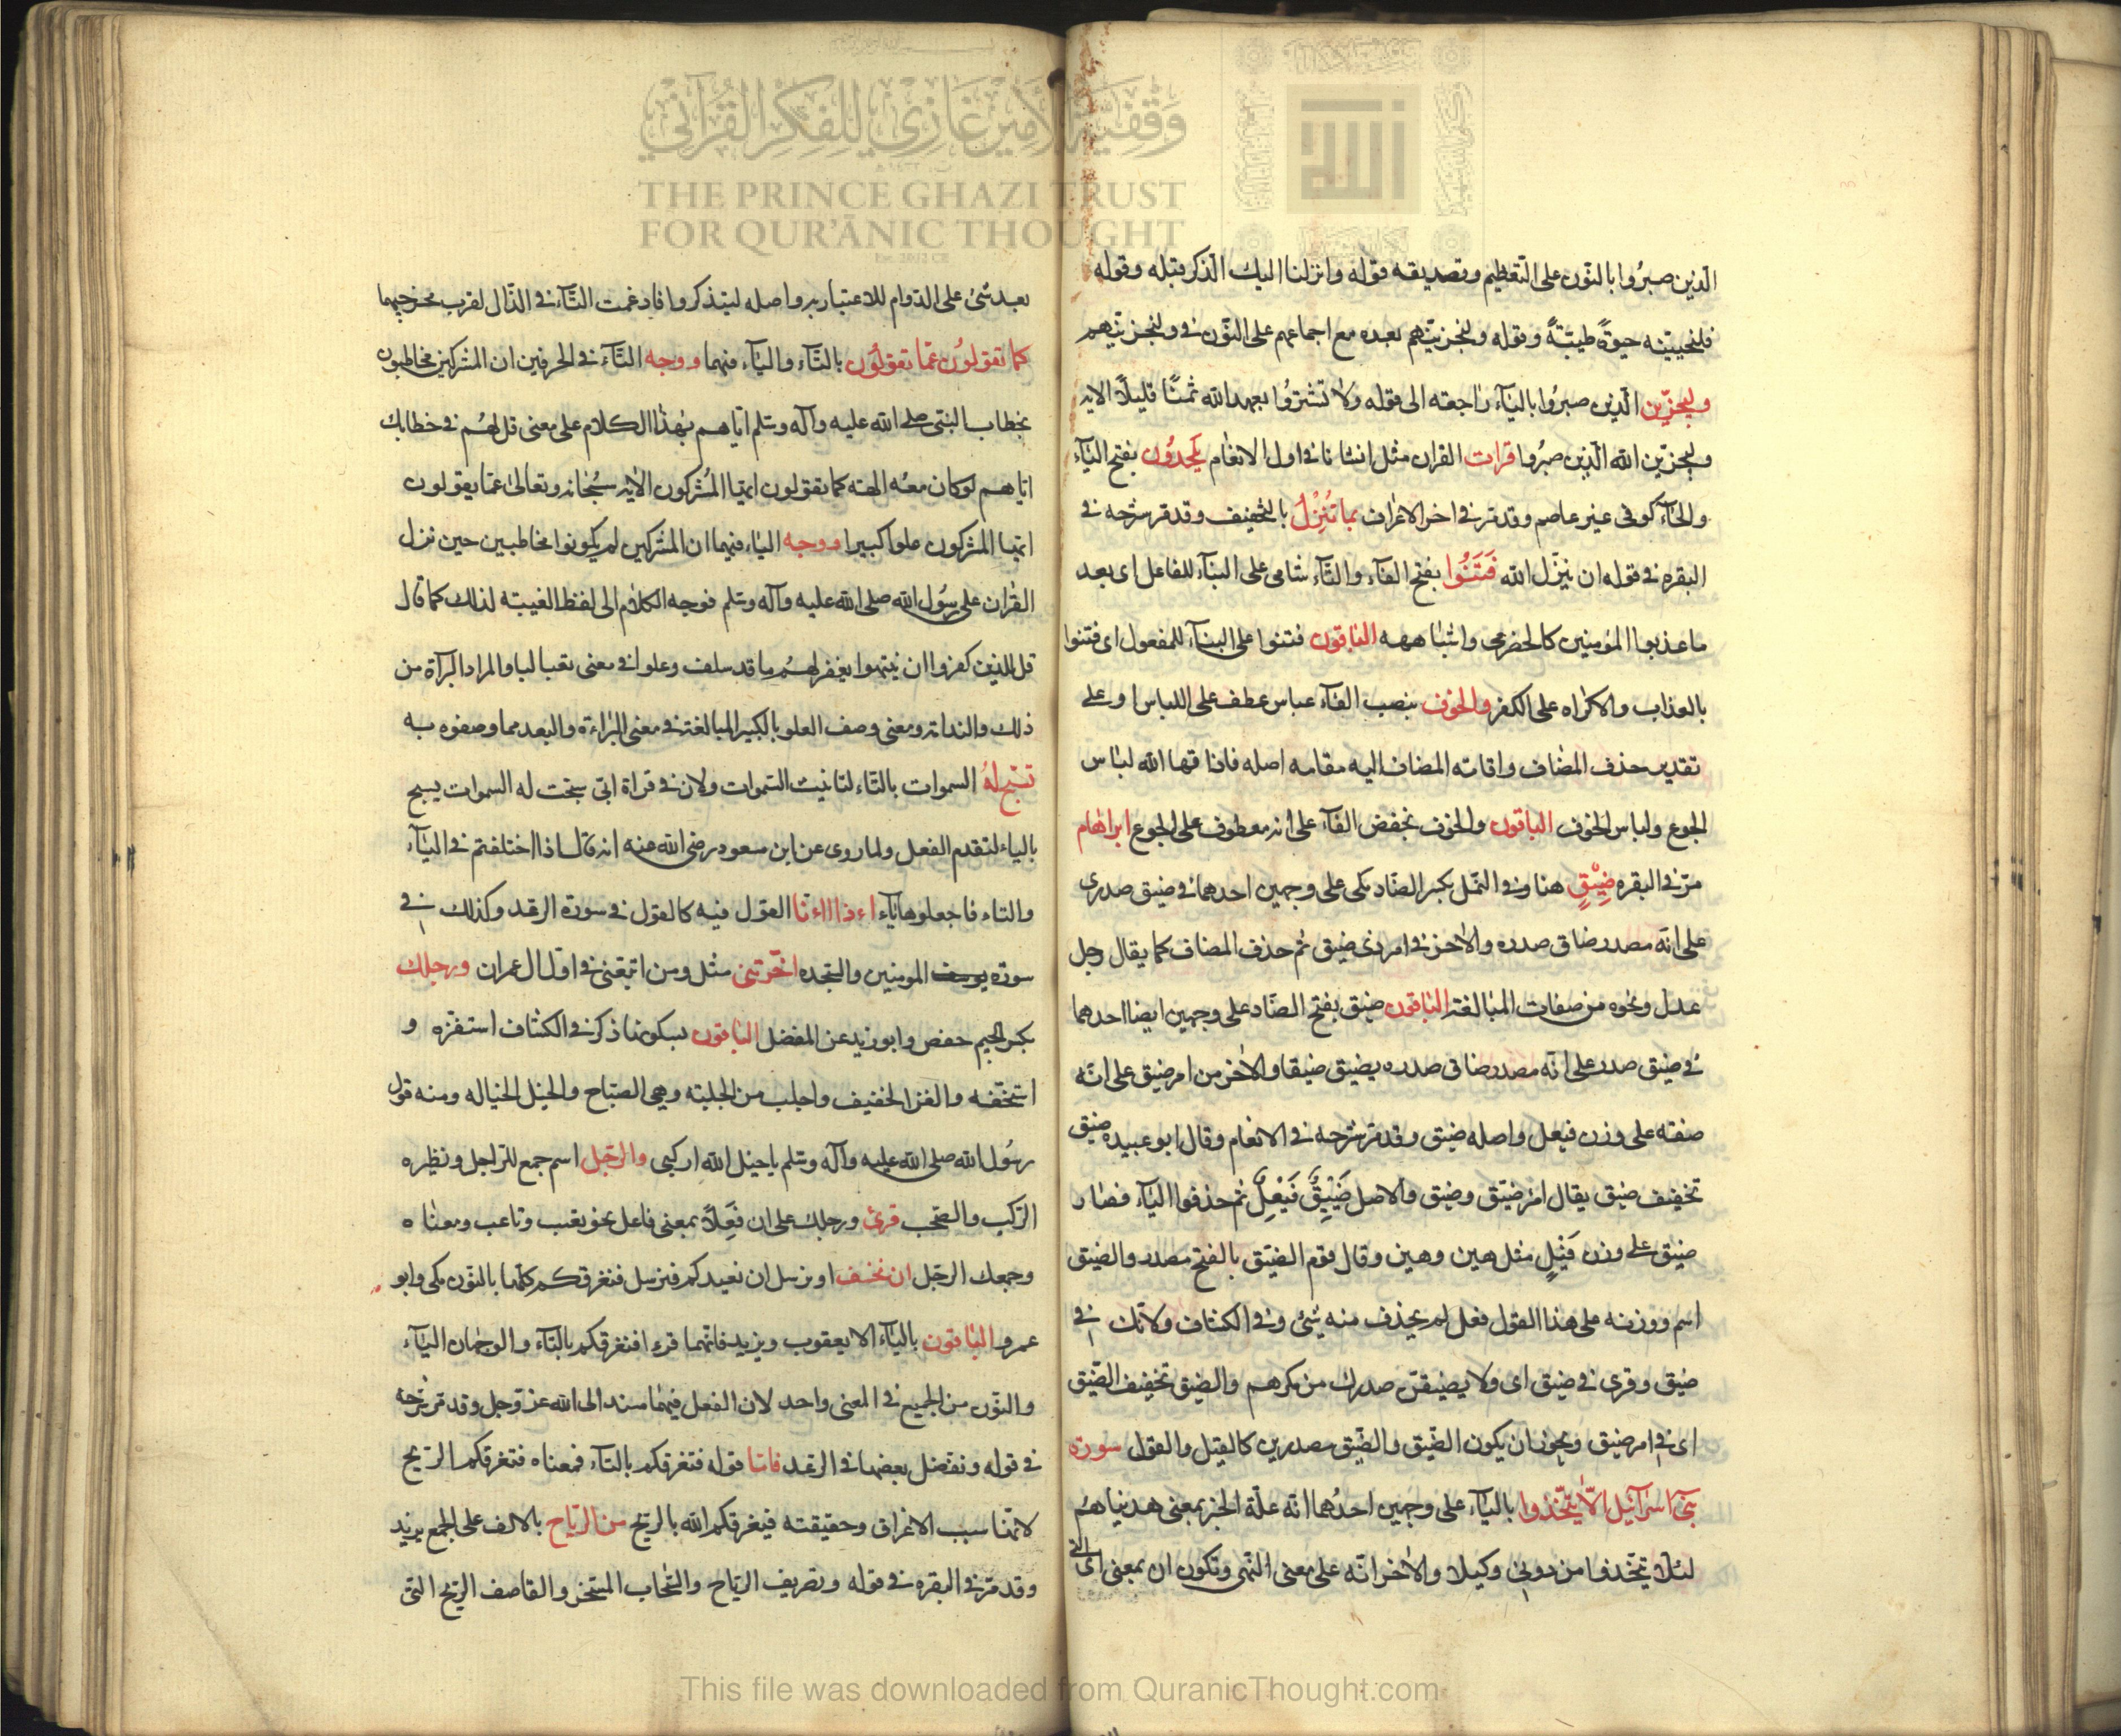 وقفية الأمير غازي للفكر القرآني
THE PRINCE GHAZI TRUST
FOR QUR'ĀNIC THOUGHT
الله
الّذين صبرُوا بالنّون على التّعظيم وتصديقه قوله وانزلنا اليك الذكر قبله وقوله
فلنحيينه حيوةً طيّبةً وقوله ولنجزينّهم بعده مع اجماعهم على النّون في ولنجزينّهم
وليجزين الّذين صبرُوا باليآء راجعته الى قوله ولا تشترُوا بعهد الله ثمنًا قليلًا الايه
وليجزين الله الّذين صبرُوا قرات القران مثل انشانا في اول الانعام يلحدُون بفتح اليآء
والحآء كوفى غير عاصم وقد مر في اخر الاعراف بما تُنزِلُ بالتخفيف وقد مر شرحه في
البقره في قوله ان ينزّل الله فَتَنُوا بفتح الفآء والتّآء شامى على البنآء للفاعل اى بعد
ما عذبوا المؤمنين كالحضرمى واشباهه الباقون فتنوا على البنآء للمفعول اى فتنوا
بالعذاب والاكراه على الكفر والخوف بنصب الفآء عباس عطف على اللباس او على
تقدير حذف المضاف واقامته المضاف اليه مقامه اصله فاذاقها الله لباس
الجوع ولباس الخوف الباقون والخوف بخفض الفآء على انه معطوف على الجوع ابراهام
مرّ في البقره ضِيْقٍ هنا وفي النمل بكسر الضّاد مكى على وجهين احدهما في ضيق صدرى
على انّه مصدر ضاق صدره والاخر في امر ذى ضيق ثم حذف المضاف كما يقال رجل
عدل ونحوه من صفات المبالغة الباقون ضيق بفتح الضّاد على وجهين ايضا احدهما
في ضيق صدر على انّه مصدر ضاق صدره يضيق ضيقا والاخر من امر ضيق على انّه
صفته على وزن فيعل واصله ضيق وقد مر شرحه في الانعام وقال ابو عبيده ضيق
تخفيف ضيق يقال امر ضيّق وضيق والاصل ضَيْيِقٌ فَيْعِلٌ ثم حذفوا اليآء فصار
ضيق على وزن فَيْلٍ مثل هين وهين وقال قوم الضيق بالفتح مصدر والضيق
اسم ووزنه على هذا القول فعل لم يحذف منه شئ وفي الكشاف ولا تك في
ضيق وقرى في ضيق اى ولا يضيقنّ صدرك من مكرهم والضيق تخفيف الضّيق
اى في امر ضيق ويجوز ان يكون الضّيق والضّيق مصدرين كالقيل والقول سورة
بنى اسرآئيل الّا يتّخذوا باليآء على وجهين احدُهما انّه علّة الخبر بمعنى هديناهُم
لئلّا يتّخذوا من دونى وكيلا والاخر انّه على معنى النّهى وتكون ان بمعنى اى التى
بعد شئ على الدّوام للاعتبار به واصله ليتذكروا فادغمت التّآء في الذّال لقرب مخرجيهما
كما تقولوُن عمّا تقولوُن بالتّآء واليآء فيهما ووجه التّآء في الحرفين ان المشركين مخاطبون
بخطاب النبى صلى الله عليه وآله وسلم ايّاهم بهذا الكلام على معنى قل لهُم في خطابك
ايّاهم لو كان معه الهة كما تقولون ايها المُشركون الايه سُبحانه وتعالى عمّا يقولون
ايها المشركون علوا كبيرا ووجه اليآء فيهما ان المشركين لم يكونوا مخاطبين حين نزل
القران على رسُول الله صلى الله عليه وآله وسلم فوجه الكلام الى لفظ الغيبة لذلك كما قال
قل للذين كفروا ان ينتهوا يغفر لهُم ما قد سلف وعلوا في معنى تعاليا والمراد البرآة من
ذلك والنداته ومعنى وصف العلو بالكبير المبالغة في معنى البراءة والبعد مما وصفوه به
تسبّح لهُ السموات بالتّاء لتانيث السّموات ولان في قراة ابىّ سبحت له السموات يسبح
بالياء لتقدم الفعل ولما روى عن ابن مسعود رضى الله عنه انه قال اذا اختلفتم في اليآء
والتاء فاجعلوها يآء اءذا اءنا القول فيه كالقول في سورة الرعد وكذلك في
سورة يوسف المومنين والسّجده اخّرتنى مثل ومن اتّبعنى في اوّل ال عمران ورجلك
بكسر الجيم حفص وابو زيد عن المفضل الباقون بسكونها ذكر في الكشاف استفزه و
استخفه والفز الخفيف واجلب من الجلبة وهى الصّياح والخيل الخياله ومنه قول
رسُول الله صلى الله عليه وآله وسلم ياخيل الله اركبى والرّجل اسم جمع للرّاجل ونظيره
الرّكب والصّحب قرئ ورجلك على ان فَعِلًا بمعنى فاعل نحو تعب وتاعب ومعناه
وجمعك الرجل ان نخسف او نرسل ان نعيدكم فنرسل فنغرقكم كلّها بالنّون مكى وابو
عمرو الباقون باليآء الا يعقوب ويزيد فانّهما قرءا فتغرقكم بالتّآء والوجهان اليآء
والنّون من الجميع في المعنى واحد لان الفعل فيهما مسند الى الله عزّ وجل وقد مر شرحه
في قوله ونفضل بعضها في الرعد فامّا قوله فتغرقكم بالتآء فمعناه فتغرقكم الرّيح
لانّها سبب الاغراق وحقيقته فيغرقكم الله بالريح من الرّياح بالالف على الجمع يزيد
وقد مرّ في البقره في قوله وتصريف الرّياح والسّحاب المسّخر والقاصف الرّيح الّتى
This file was downloaded from QuranicThought.com